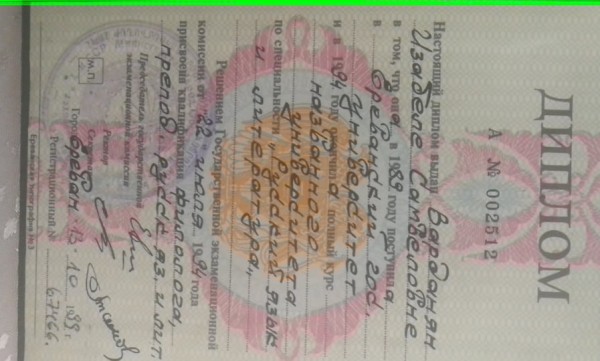 ДИПЛОМ
А № 002512
Настоящий диплом выдан Варданян
Изабеле Самвеловне
в том, что она в 1989 году поступила
в Ереванский гос.
университет
и в 1994 году окончила полный курс
названного
университета
по специальности „Русский язык
и литература„
Решением Государственной экзаменационной
комиссии от 22 июля 1994 года
присвоена квалификация филолога,
препод. русск. яз. и лит.
Председатель государственной
экзаменационной комиссии
Ректор
Секретарь
М.П.
Город Ереван 13. 10 199 г.
Регистрационный № 67466.